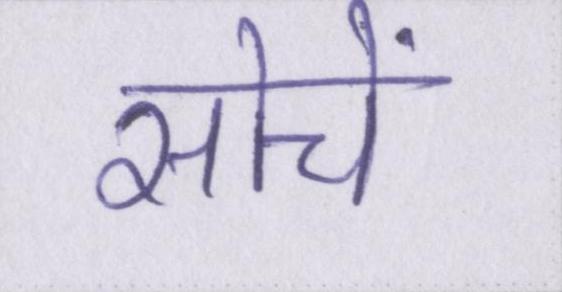 सोचें